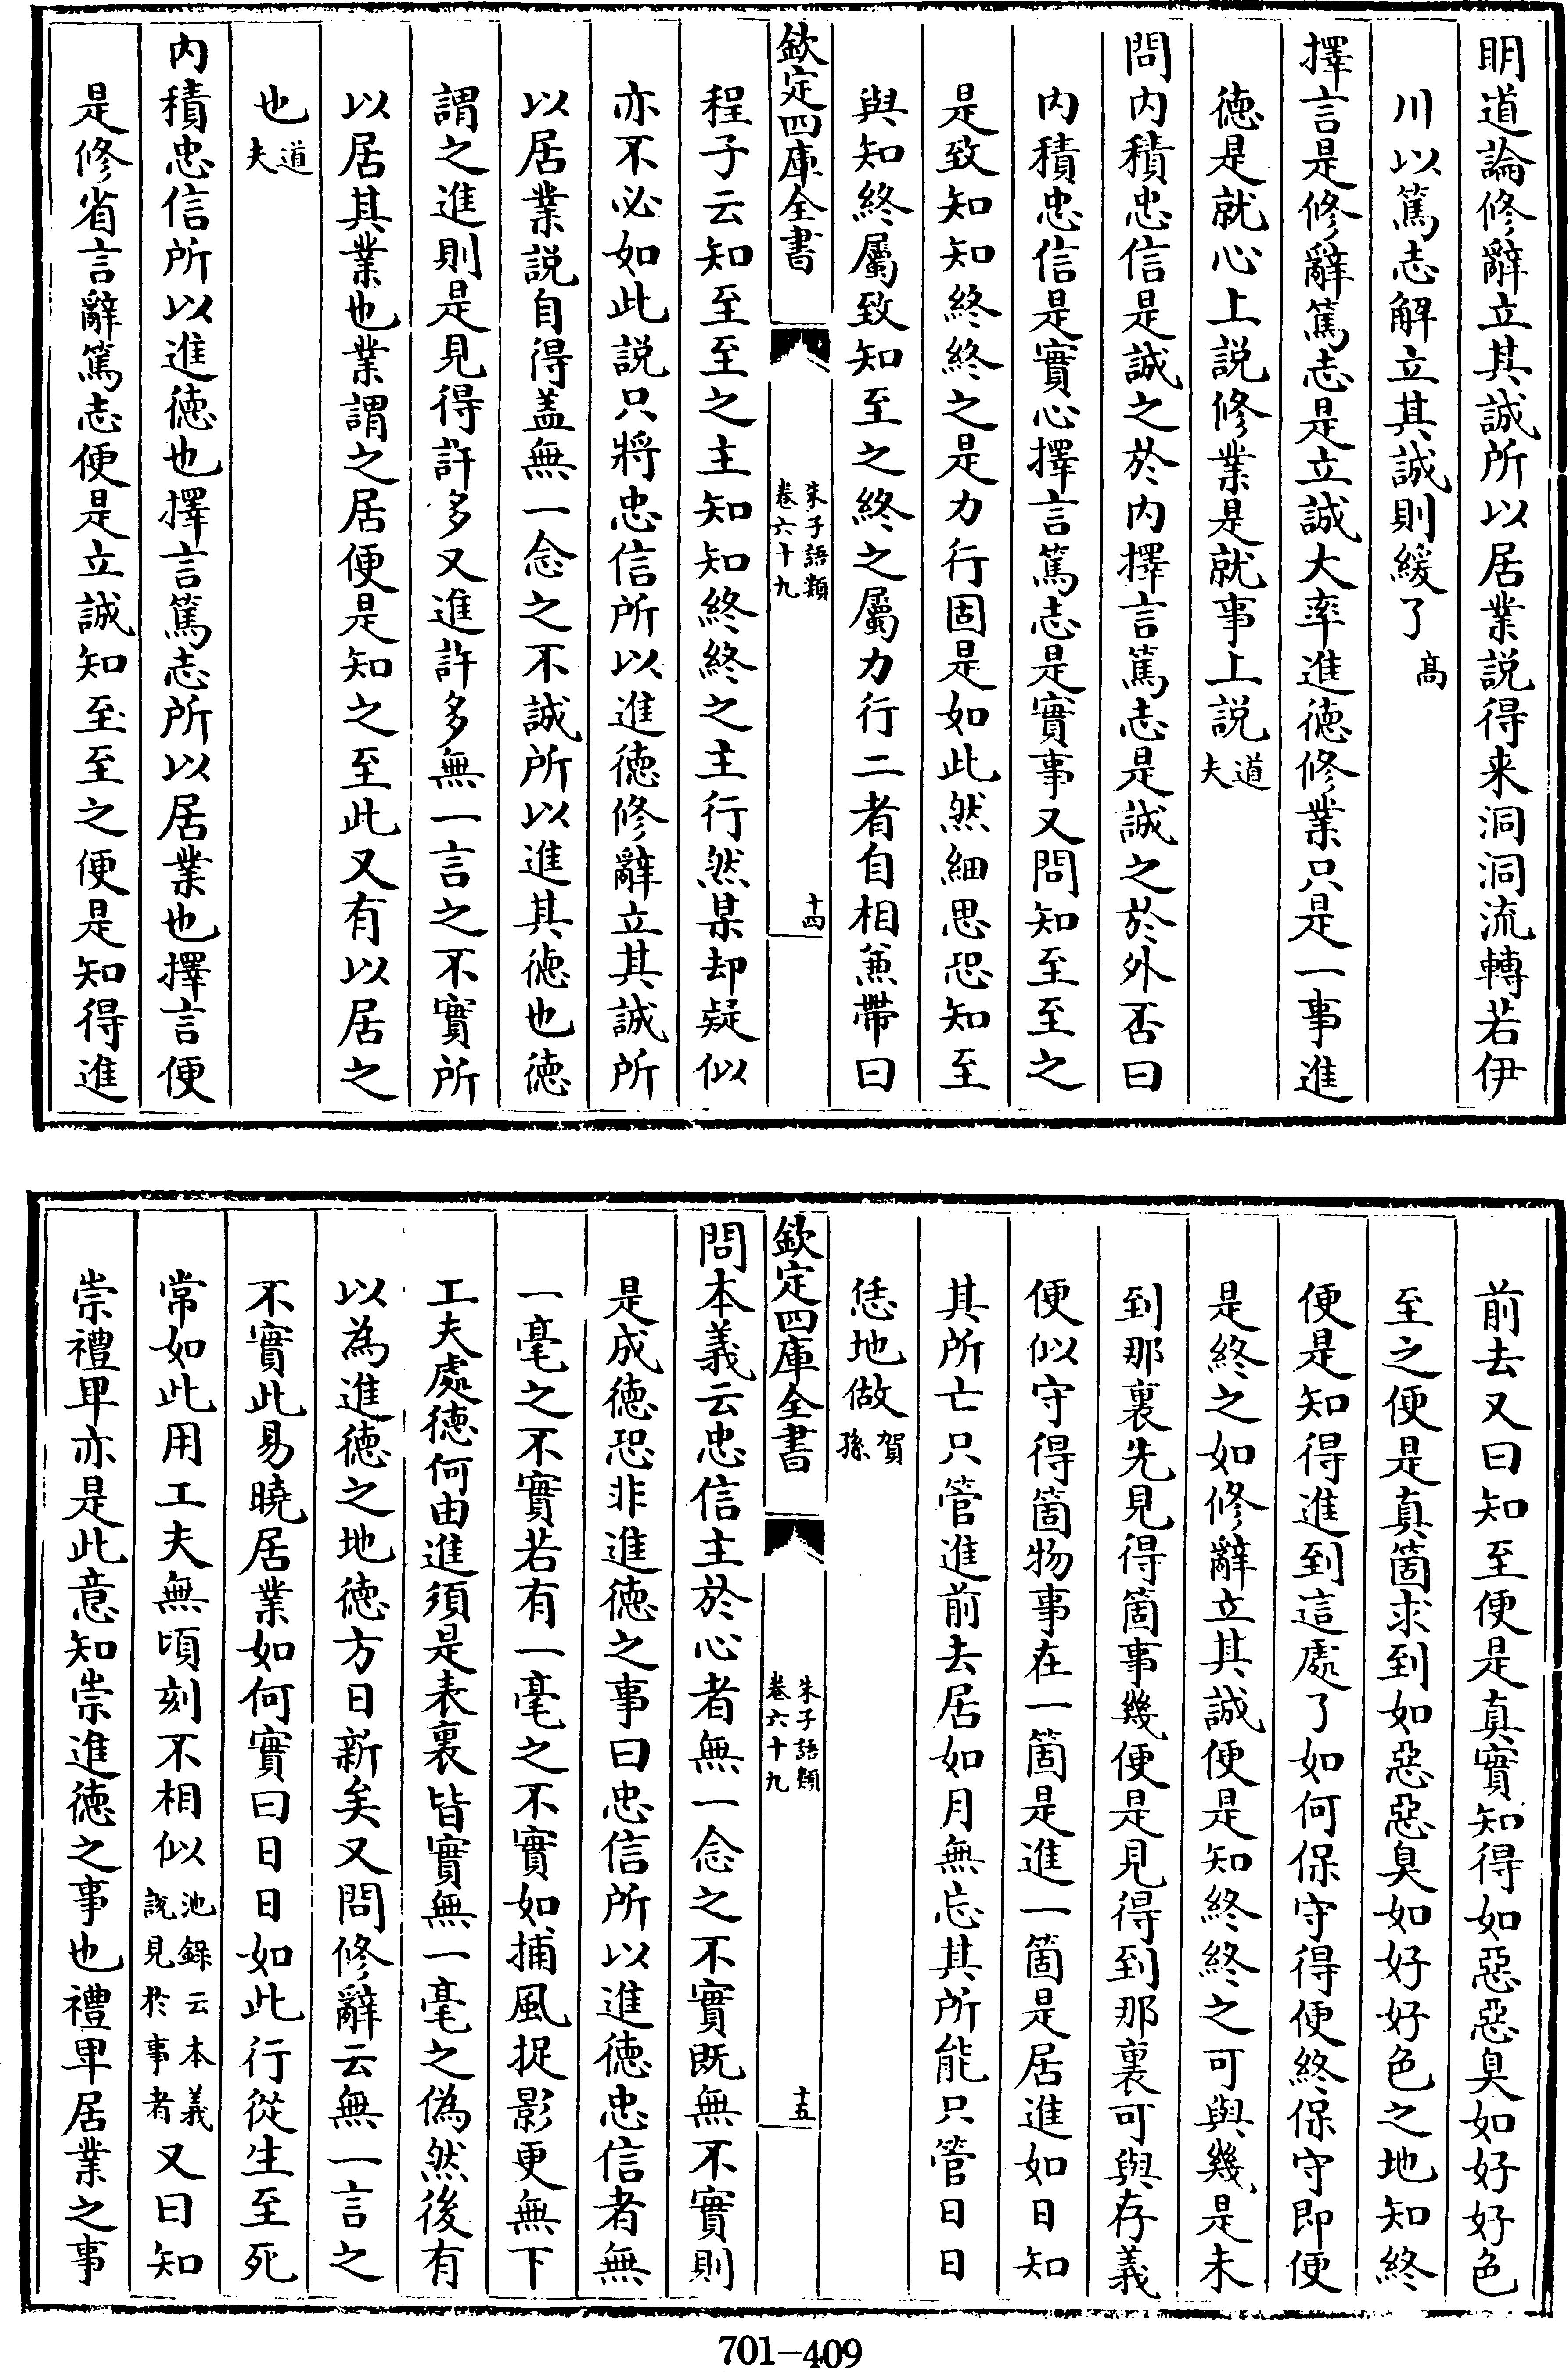 明道論修辭立其誠所以居業説得来洞洞流轉若伊
川以篤志解立其誠則緩了高
擇言是修辭篤志是立誠大率進徳修業只是一事進
徳是就心上説修業是就事上説道夫
問内積忠信是誠之於内擇言篤志是誠之於外否曰
内積忠信是實心擇言篤志是實事又問知至至之
是致知知終終之是力行固是如此然細思恐知至
與知終屬致知至之終之屬力行二者自相兼帶曰
欽定四庫全書
朱子語類
卷六十九
十四
程子云知至至之主知知終終之主行然某却疑似
亦不必如此説只將忠信所以進徳修辭立其誠所
以居業説自得盖無一念之不誠所以進其徳也徳
謂之進則是見得許多又進許多無一言之不實所
以居其業也業謂之居便是知之至此又有以居之
也道夫
内積忠信所以進徳也擇言篤志所以居業也擇言便
是修省言辭篤志便是立誠知至至之便是知得進
前去又曰知至便是真實知得如惡惡臭如好好色
至之便是真箇求到如惡惡臭如好好色之地知終
便是知得進到這處了如何保守得便終保守即便
是終之如修辭立其誠便是知終終之可與幾是未
到那裏先見得箇事幾便是見得到那裏可與存義
便似守得箇物事在一箇是進一箇是居進如日知
其所亡只管進前去居如月無忘其所能只管日日
恁地做賀孫
欽定四庫全書
朱子語類
卷六十九
十五
問本義云忠信主於心者無一念之不實既無不實則
是成徳恐非進徳之事曰忠信所以進徳忠信者無
一毫之不實若有一毫之不實如捕風捉影更無下
工夫處徳何由進須是表裏皆實無一毫之偽然後有
以為進徳之地徳方日新矣又問修辭云無一言之
不實此易曉居業如何實曰日日如此行從生至死
常如此用工夫無頃刻不相似池録云本義説見於事者又曰知
崇禮卑亦是此意知崇進徳之事也禮卑居業之事
701-409